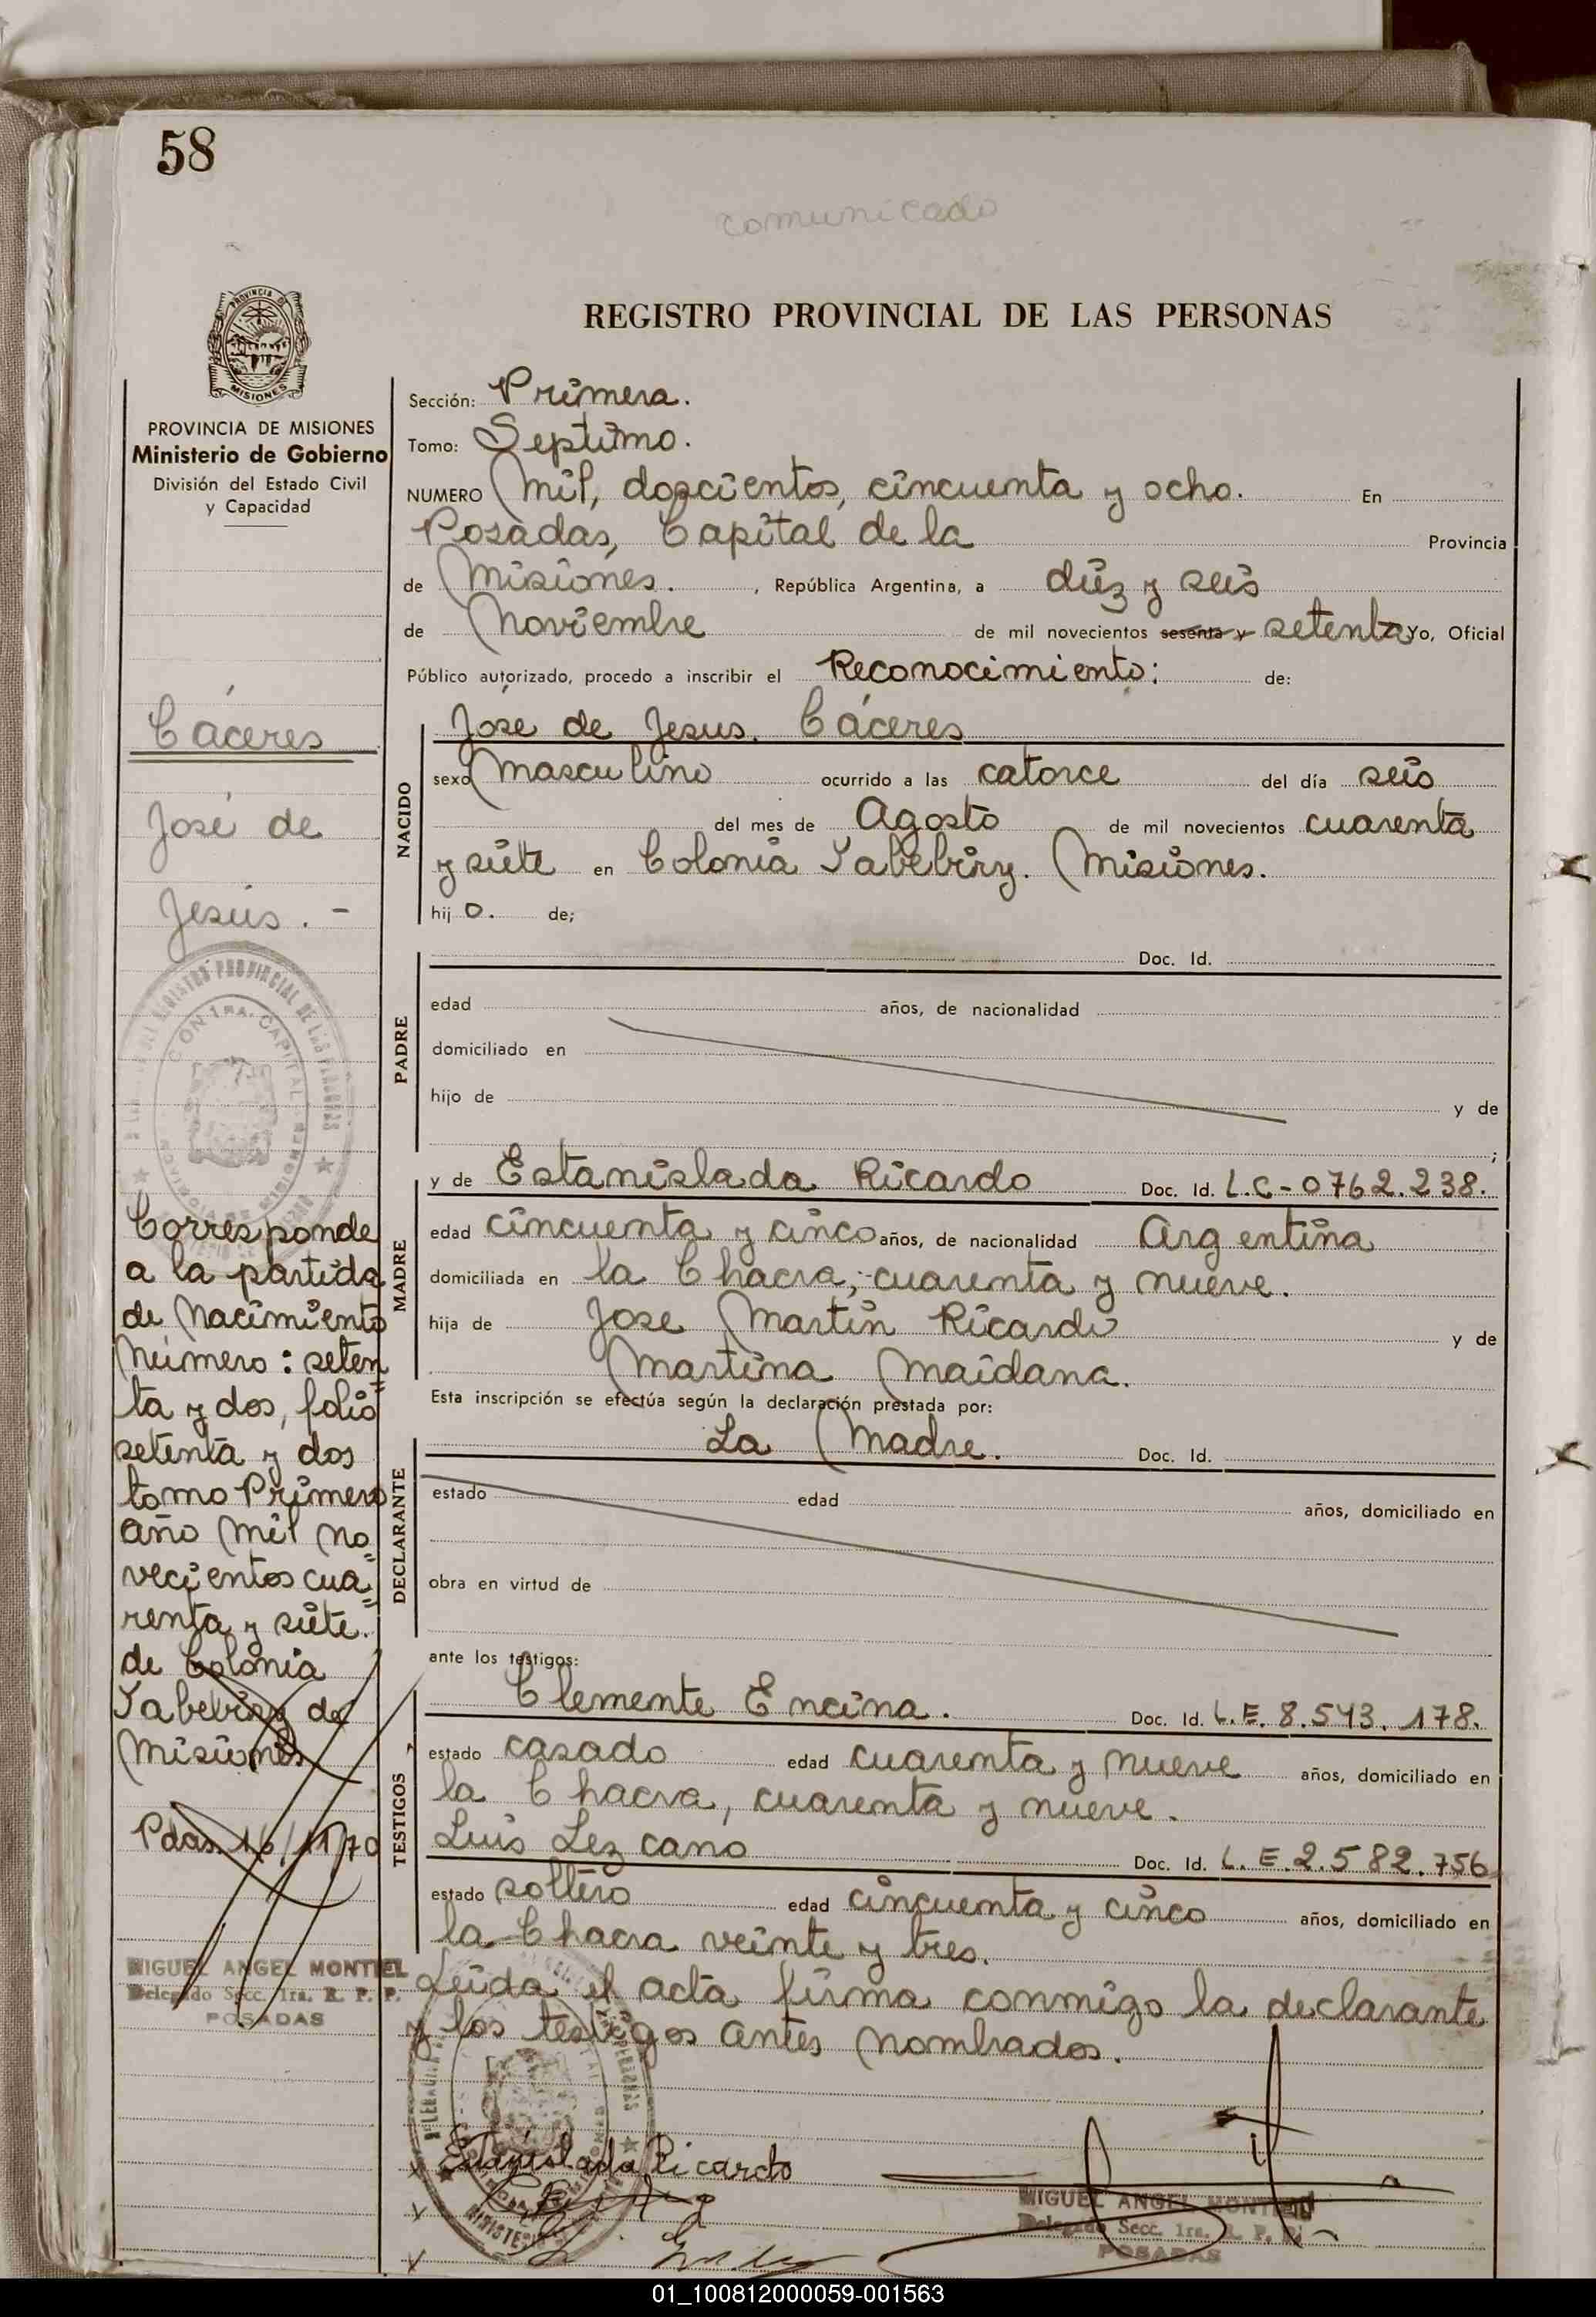 58
comunicado
REGISTRO PROVINCIAL DE LAS PERSONAS
PROVINCIA DE
MISIONES
PROVINCIA DE MISIONES
Ministerio de Gobierno
División del Estado Civil
y Capacidad
Cáceres
José de
Jesús. -
Corresponde
a la partida
de Nacimiento
Número: seten=
ta y dos, folio
setenta y dos
tomo Primero
año mil no=
vecientos cua=
renta y siete.
de Colonia
Yabebiry de
Misiones
Pdas. 16/11/70
MIGUEL ANGEL MONTIEL
Delegado Secc. 1ra. R. P. P.
POSADAS
Sección: Primera.
Tomo: Septimo.
NUMERO Mil, doscientos, cincuenta y ocho. En
Posadas, Capital de la Provincia
de Misiones. , República Argentina, a diéz y seis
de Noviembre de mil novecientos sesenta y setenta Yo, Oficial
Público autorizado, procedo a inscribir el Reconocimiento; de:
NACIDO
José de Jesus. Cáceres
sexo Masculino ocurrido a las catorce del día seis
del mes de Agosto de mil novecientos cuarenta
y siete en Colonia Yabebiry. Misiones.
hij o. de;
PADRE
Doc. Id.
edad años, de nacionalidad
domiciliado en
hijo de y de
;
MADRE
y de Estanislada Ricardo Doc. Id. L.C-0762.238.
edad cincuenta y cinco años, de nacionalidad Argentina
domiciliada en la Chacra, cuarenta y nueve.
hija de Jose Martin Ricardo y de
Martina Maidana.
Esta inscripción se efectúa según la declaración prestada por:
DECLARANTE
La Madre. Doc. Id.
estado edad años, domiciliado en
obra en virtud de
ante los testigos:
TESTIGOS
Clemente Encina. Doc. Id. L.E. 8.543.178.
estado casado edad cuarenta y nueve años, domiciliado en
la Chacra, cuarenta y nueve.
Luis Lezcano Doc. Id. L.E.2.582.756
estado soltero edad cincuenta y cinco años, domiciliado en
la Chacra veinte y tres.
Leida el acta firma conmigo la declarante
y los testigos antes nombrados.
Estanislada Ricardo
MIGUEL ANGEL MONTIEL
Delegado Secc. 1ra. R. P. P.
POSADAS
01_100812000059-001563